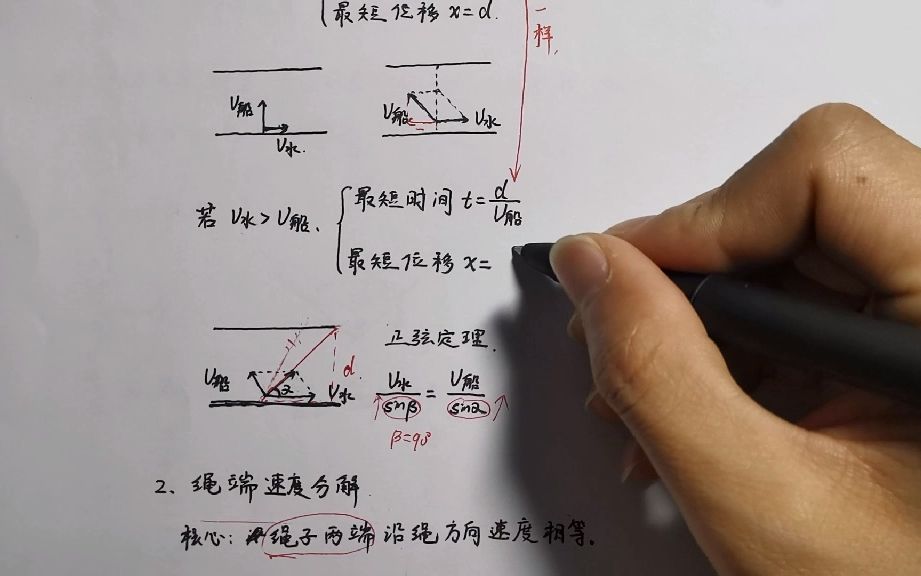 最短位移 x=d.
一样.
V船
V水.
V船
V水
若 V水>V船.
最短时间 t=d/V船
最短位移 x=
正弦定理.
V船
α
V水
d
V水/sinβ = V船/sinα
β=90°
2、绳端速度分解.
核心: 绳子两端沿绳方向速度相等.